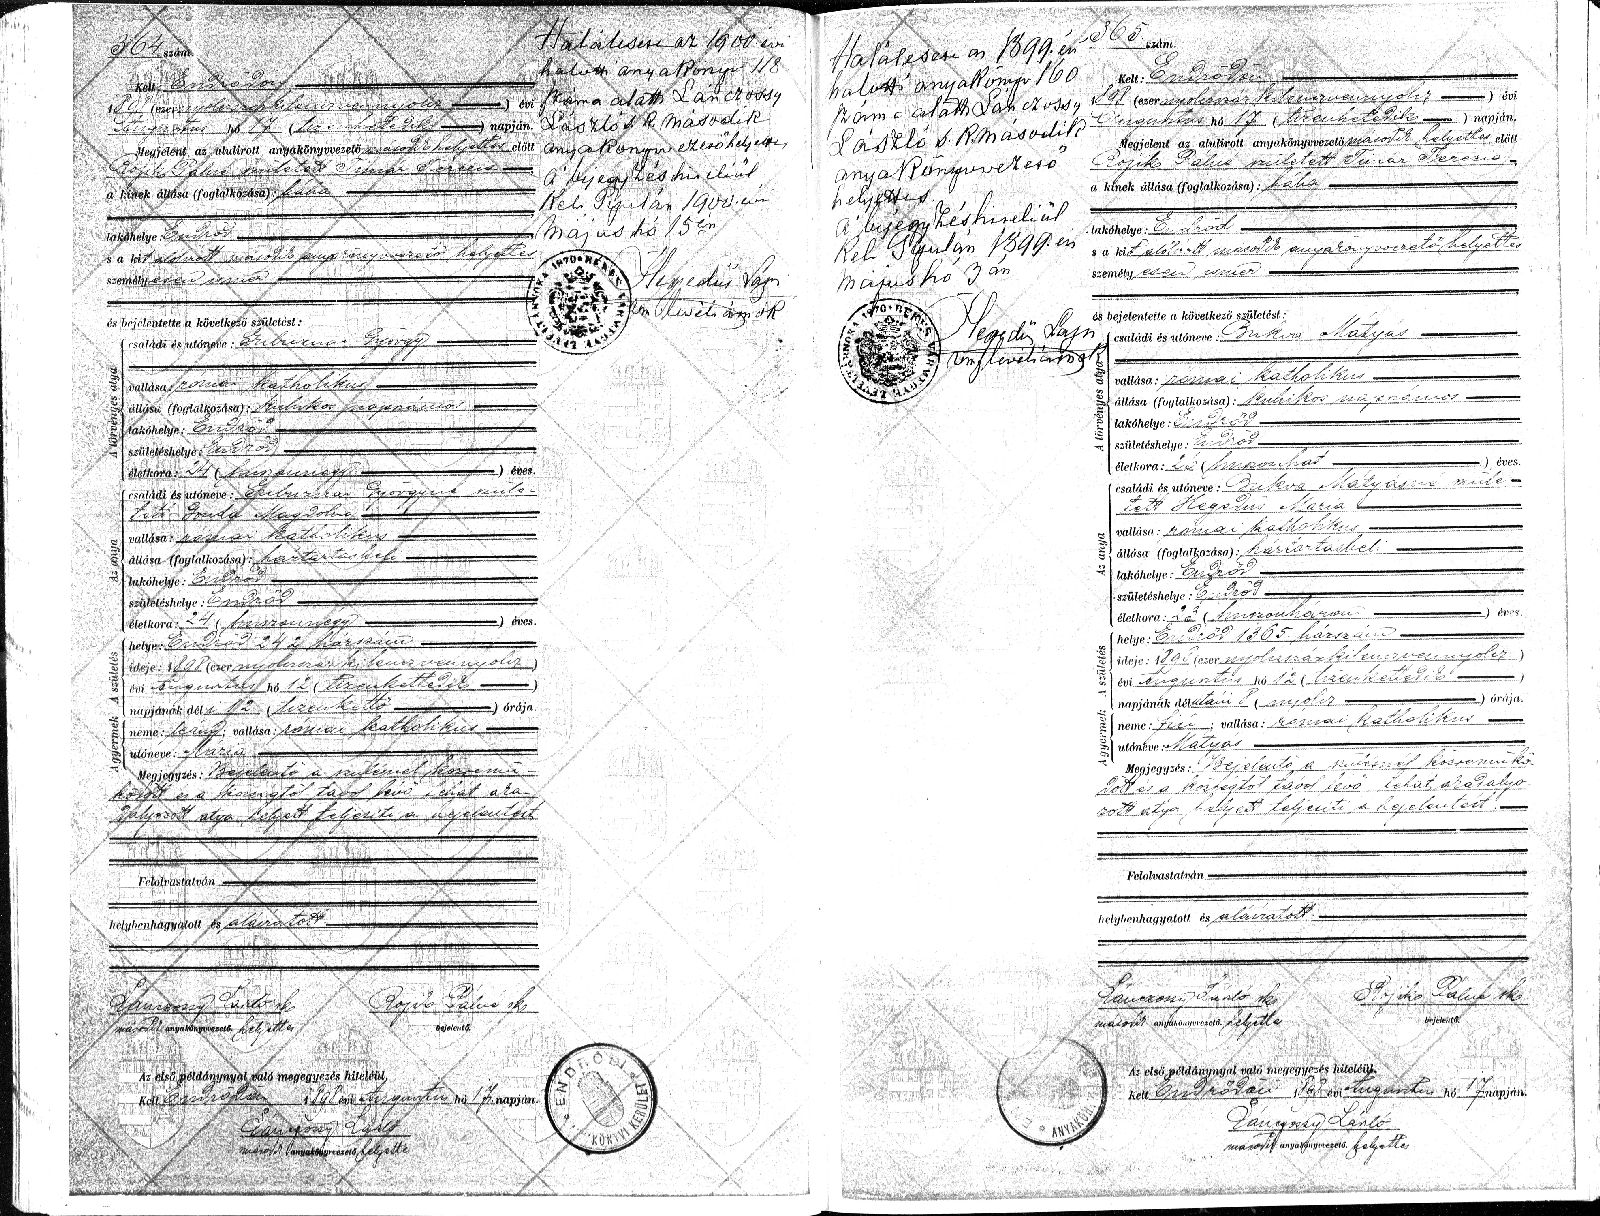 364 szám.
Kelt: Endrődön
1898 (ezer nyolcszázkilenczvennyolcz) évi
Augusztus hó 17 (tizenhetedik) napján.
Megjelent az alulirott anyakönyvvezető második helyettes előtt
Rojik Pálné született Timár Terézia
a kinek állása (foglalkozása): bába
lakóhelye: Endrőd
s a kit alulirott második anyakönyvvezető helyettes
személyesen ismer
és bejelentette a következő születést:
A törvényes atya
családi és utóneve: György
vallása: római katholikus
állása (foglalkozása): kubikos napszámos
lakóhelye: Endrőd
születéshelye: Endrőd
életkora: 24 (huszonnégy) éves.
Az anya
családi és utóneve: Györgyné szüle-
tett Magdolna
vallása: római katholikus
állása (foglalkozása): háztartásbeli
lakóhelye: Endrőd
születéshelye: Endrőd
életkora: 24 (huszonnégy) éves.
A születés
helye: Endrőd 242 házszám
ideje: 1898 (ezer nyolcszázkilenczvennyolcz)
évi Augusztus hó 12 (tizenkettedik)
napjának dél 12 (tizenkettő) órája.
A gyermek
neme: leány; vallása: római katholikus
utóneve: Mária
Megjegyzés: Bejelentő a szülésnél közremű-
ködött és a községtől távol lévő tehát aka-
dályozott atya helyett teljesíti a bejelentést
Felolvastatván
helybenhagyatott és aláiratott
Lánczossy László sk. Rojik Pálné sk.
második anyakönyvvezető. helyettes bejelentő.
Az első példánynyal való megegyezés hiteléül,
Kelt Endrődön 1898 évi Augusztus hó 17. napján.
Lánczossy László
második anyakönyvvezető helyettes
ENDRŐDI
KÖNYVI KERÜLET
Halálesete az 1900 évi
halotti anyakönyv 118
száma alatt Lánczossy
László s. k. második
anyakönyvvezetőhelyettes
A bejegyzés hiteléül
Kelt Gyulán 1900. évi
május hó 15én
Hegedüs Lajos
vm. levéltárnok
BÉKÉS VÁRMEGYE LEVÉLTÁRNOKA 1870
Halálesete az 1899. évi
halotti anyakönyv 160
száma alatt Lánczossy
László s. k. második
anyakönyvvezető
helyettes
A bejegyzés hiteléül
Kelt Gyulán 1899. évi
május hó 3án
Hegedüs Lajos
vm. levéltárnok
BÉKÉS VÁRMEGYE LEVÉLTÁRNOKA 1870
365 szám.
Kelt: Endrődön
1898 (ezer nyolcszázkilenczvennyolcz) évi
Augusztus hó 17 (tizenhetedik) napján.
Megjelent az alulirott anyakönyvvezető második helyettes előtt
Rojik Pálné született Timár Terézia
a kinek állása (foglalkozása): bába
lakóhelye: Endrőd
s a kit alulirott második anyakönyvvezető helyettes
személyesen ismer
és bejelentette a következő születést:
A törvényes atya
családi és utóneve: Bukva Mátyás
vallása: római katholikus
állása (foglalkozása): kubikos napszámos
lakóhelye: Endrőd
születéshelye: Endrőd
életkora: 26 (huszonhat) éves.
Az anya
családi és utóneve: Bukva Mátyásné szüle-
tett Hegedüs Mária
vallása: római katholikus
állása (foglalkozása): háztartásbeli
lakóhelye: Endrőd
születéshelye: Endrőd
életkora: 23 (huszonhárom) éves.
A születés
helye: Endrőd 1365 házszám
ideje: 1898 (ezer nyolcszázkilenczvennyolcz)
évi Augusztus hó 12 (tizenkettedik)
napjának délutáni 8 (nyolcz) órája.
A gyermek
neme: fiú; vallása: római katholikus
utóneve: Mátyás
Megjegyzés: Bejelentő a szülésnél közremükö-
dött és a községtől távol lévő tehát akadályo-
zott atya helyett teljesíti a bejelentést
Felolvastatván
helybenhagyatott és aláiratott
Lánczossy László sk. Rojik Pálné sk.
második anyakönyvvezető. helyettes bejelentő.
Az első példánynyal való megegyezés hiteléül,
Kelt Endrődön 1898 évi Augusztus hó 17 napján.
Lánczossy László
második anyakönyvvezető helyettes
ANYAKÖ